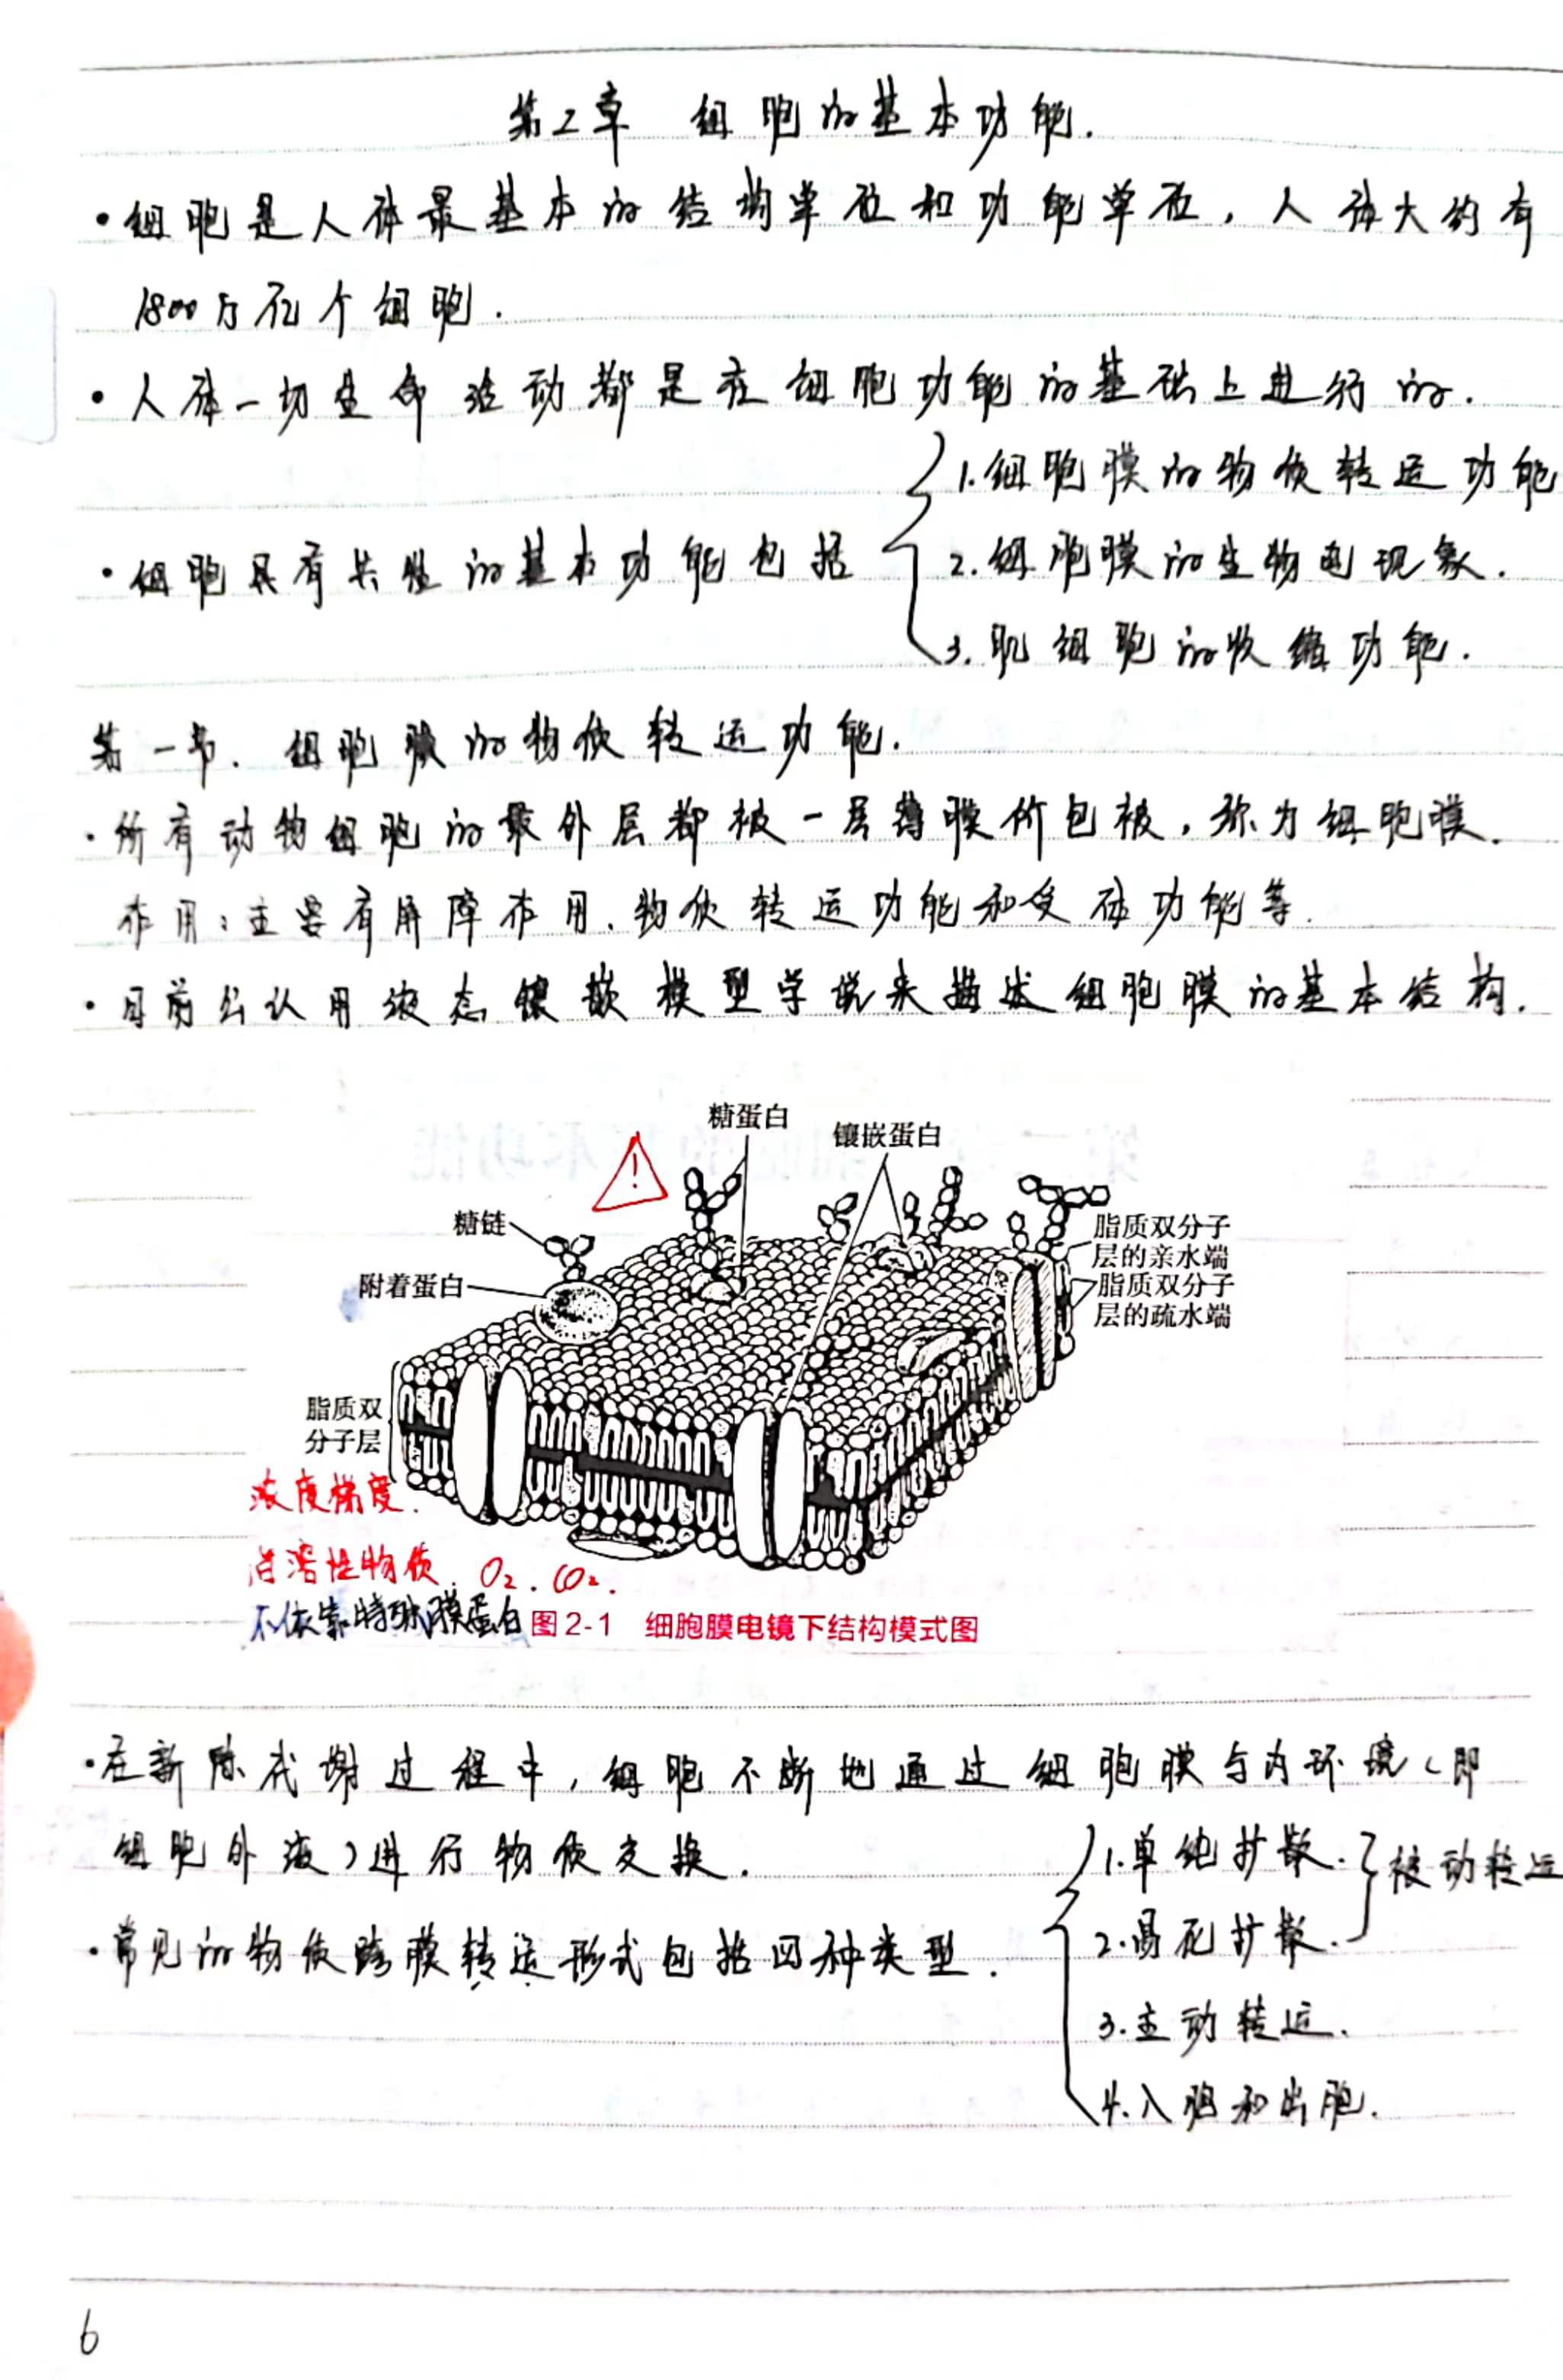 第2章 细胞的基本功能.
·细胞是人体最基本的结构单位和功能单位,人体大约有
1800万亿个细胞.
·人体一切生命活动都是在细胞功能的基础上进行的.
·细胞具有共性的基本功能包括
1.细胞膜的物质转运功能
2.细胞膜的生物电现象.
3.肌细胞的收缩功能.
第一节. 细胞膜的物质转运功能.
·所有动物细胞的最外层都被一层薄膜所包被,称为细胞膜.
作用:主要有屏障作用、物质转运功能和受体功能等.
·目前公认用液态镶嵌模型学说来描述细胞膜的基本结构.
糖蛋白
镶嵌蛋白
!
糖链
附着蛋白
脂质双分子
层的亲水端
脂质双分子
层的疏水端
脂质双
分子层
浓度梯度.
脂溶性物质. O₂. CO₂.
不依靠特殊膜蛋白
图2-1 细胞膜电镜下结构模式图
·在新陈代谢过程中,细胞不断地通过细胞膜与内环境(即
细胞外液)进行物质交换.
·常见的物质跨膜转运形式包括四种类型.
1.单纯扩散.
2.易化扩散.
被动转运
3.主动转运.
4.入胞和出胞.
6